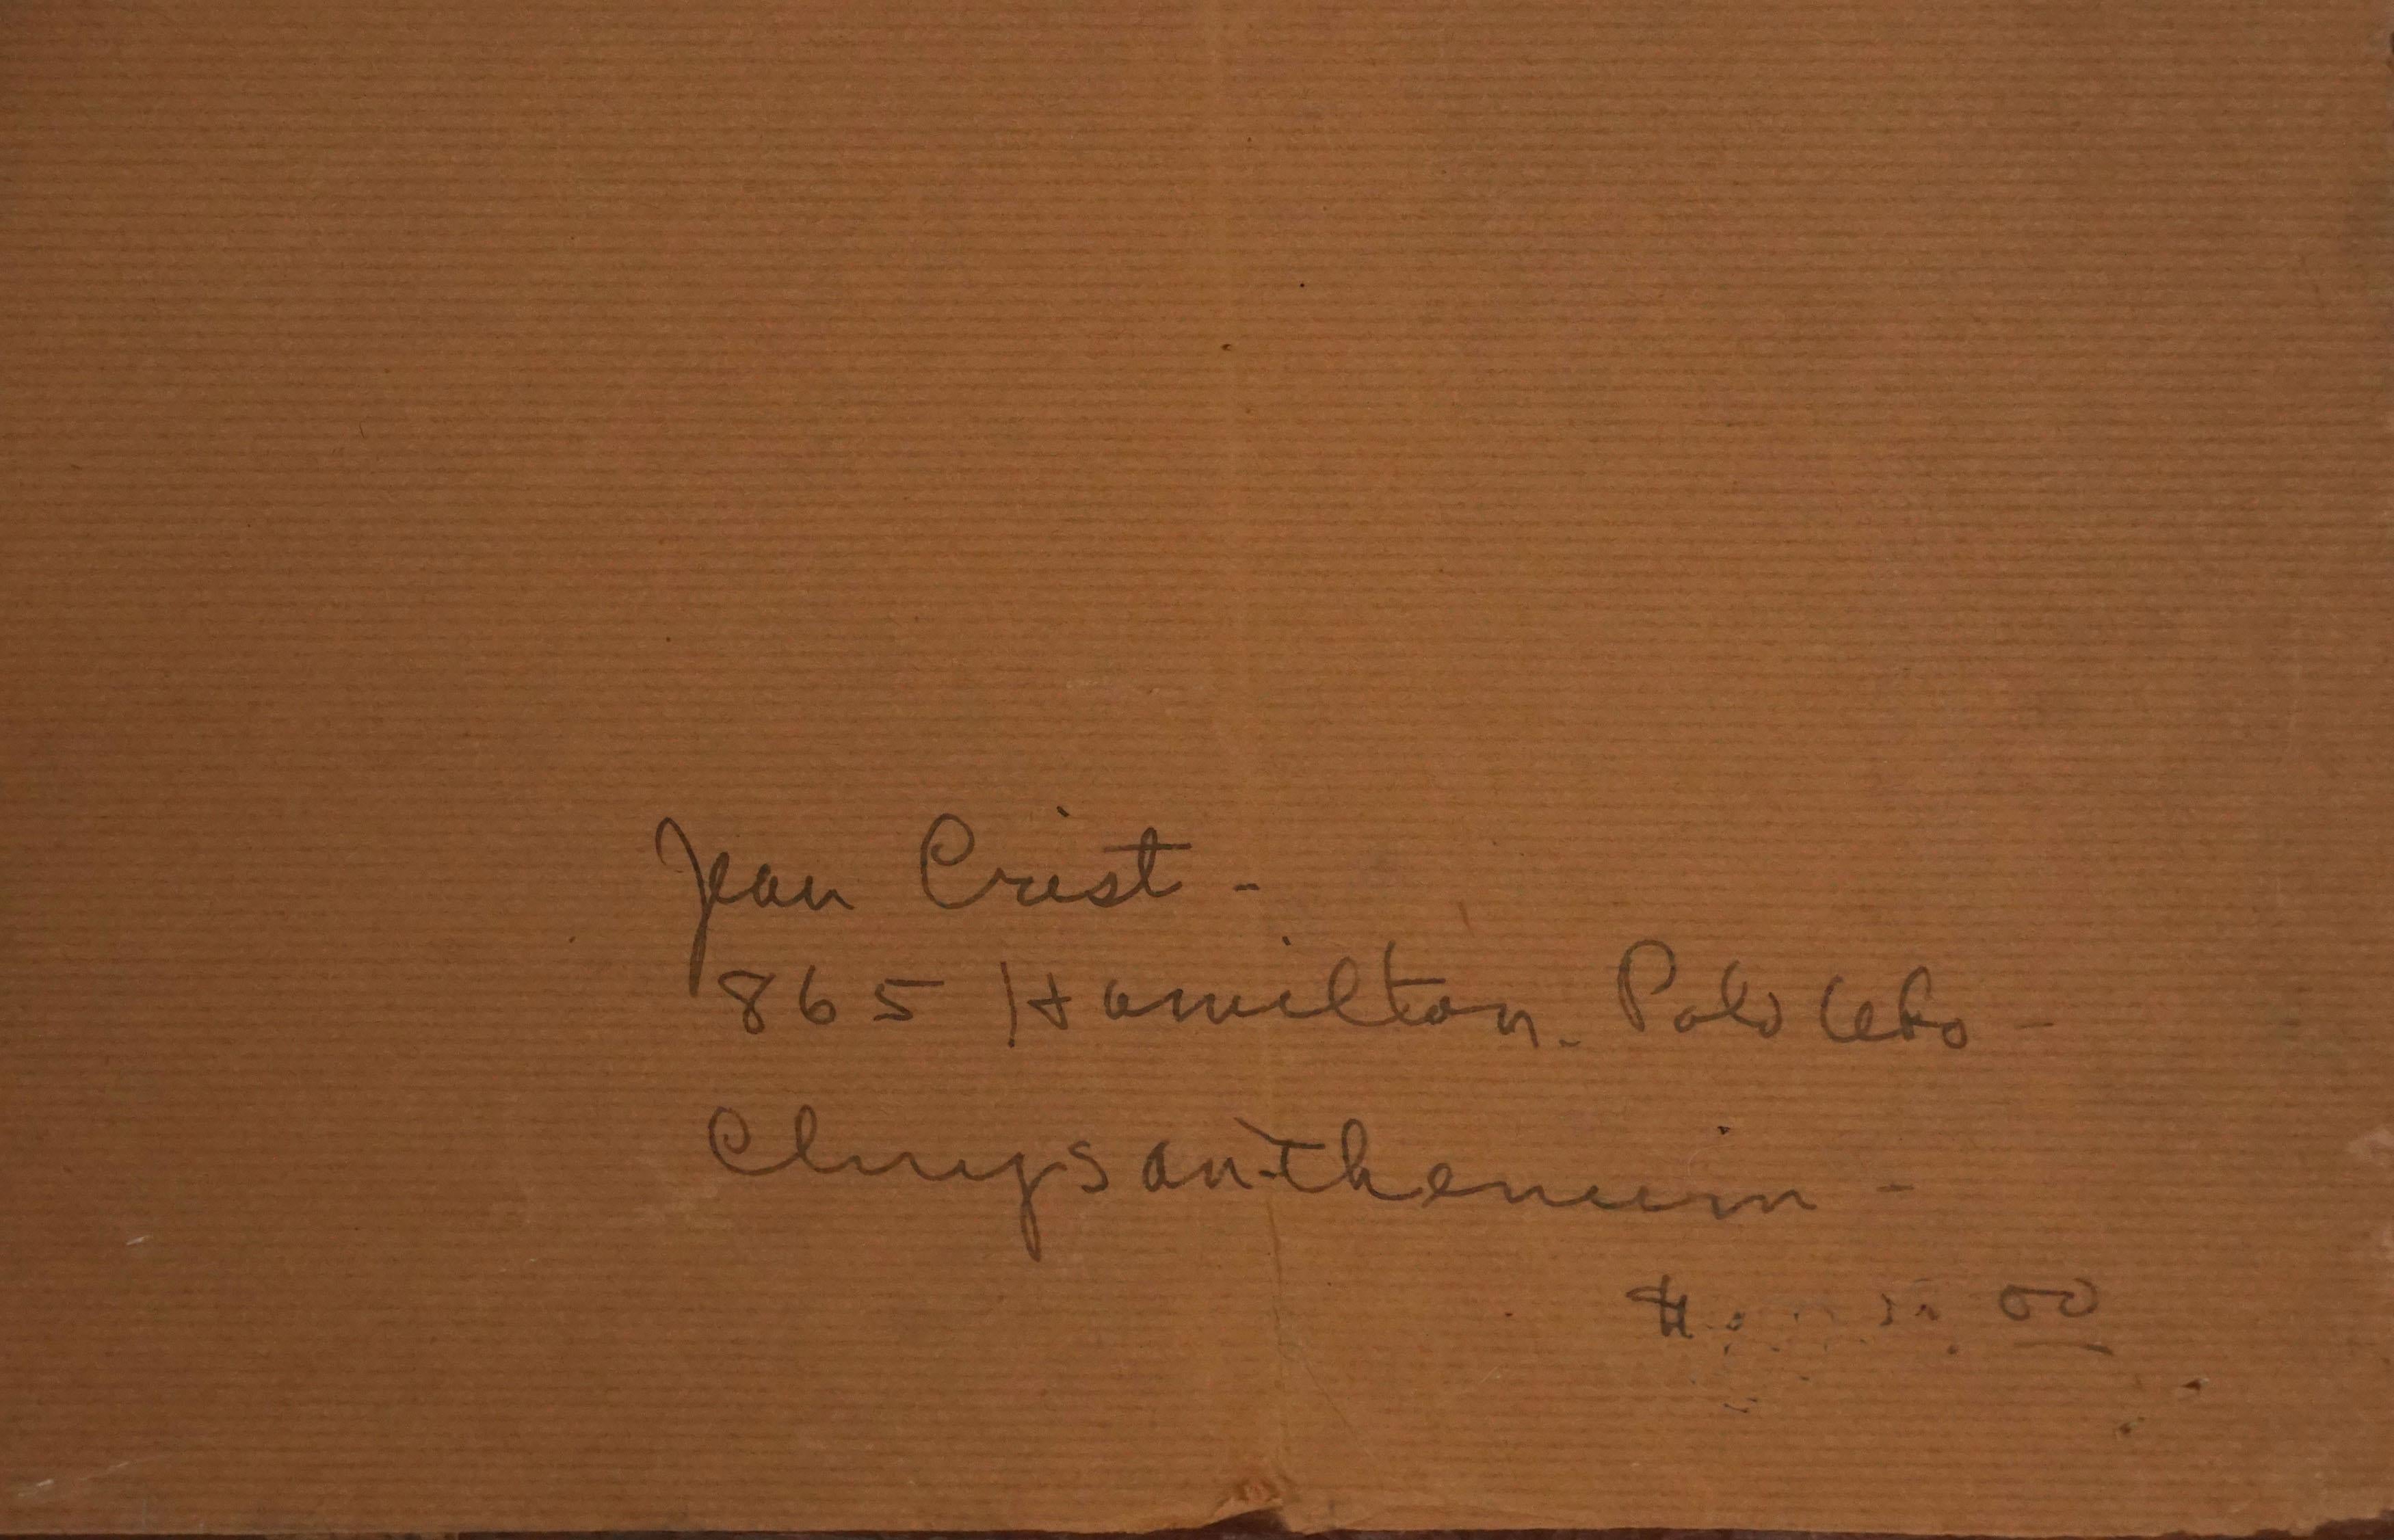 Jean Crist -
865 Hamilton. Palo Alto -
Chrysanthemum -
$ 00